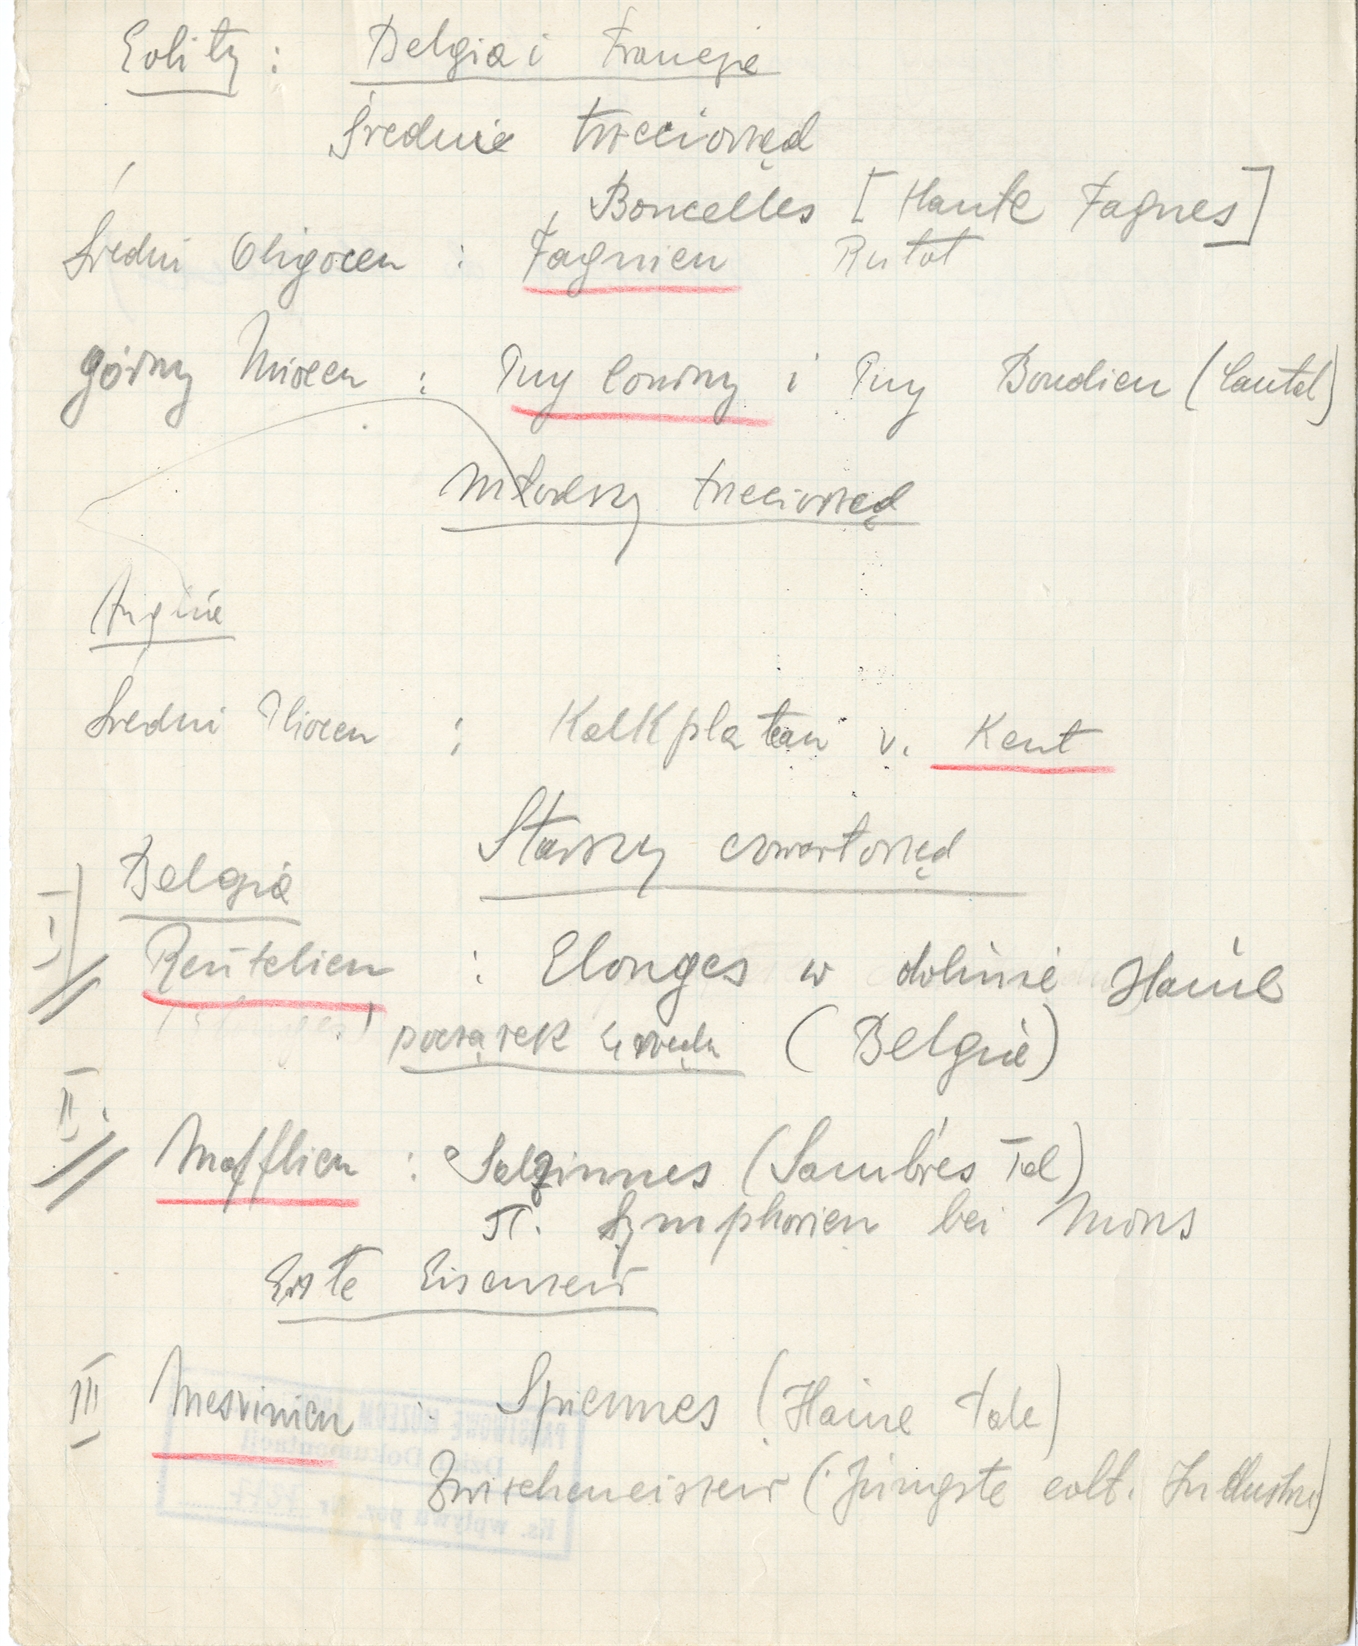 Eolity : Belgia i Francja
Średnie trzeciorzęd
Boncelles [Haute Fagnes]
Średni Oligocen : Fagnien Rutot
górny Miocen : Puy Courny i Puy Boudieu (Cantal)
Młodszy trzeciorzęd
Anglia
Średni Pliocen : Kalkplateau v. Kent
Starszy czwartorzęd
Belgia
I) Reutelien : Elonges w dolinie Haine
początek 4 rzędu (Belgia)
II. Mafflien : Salzinnes (Sambre's Tal)
St. Symphorien bei Mons
Erste Eiszeit
III Mesvinien : Spiennes (Haine Tale)
Zwischeneiszeit (Jüngste eolt. Industrie)